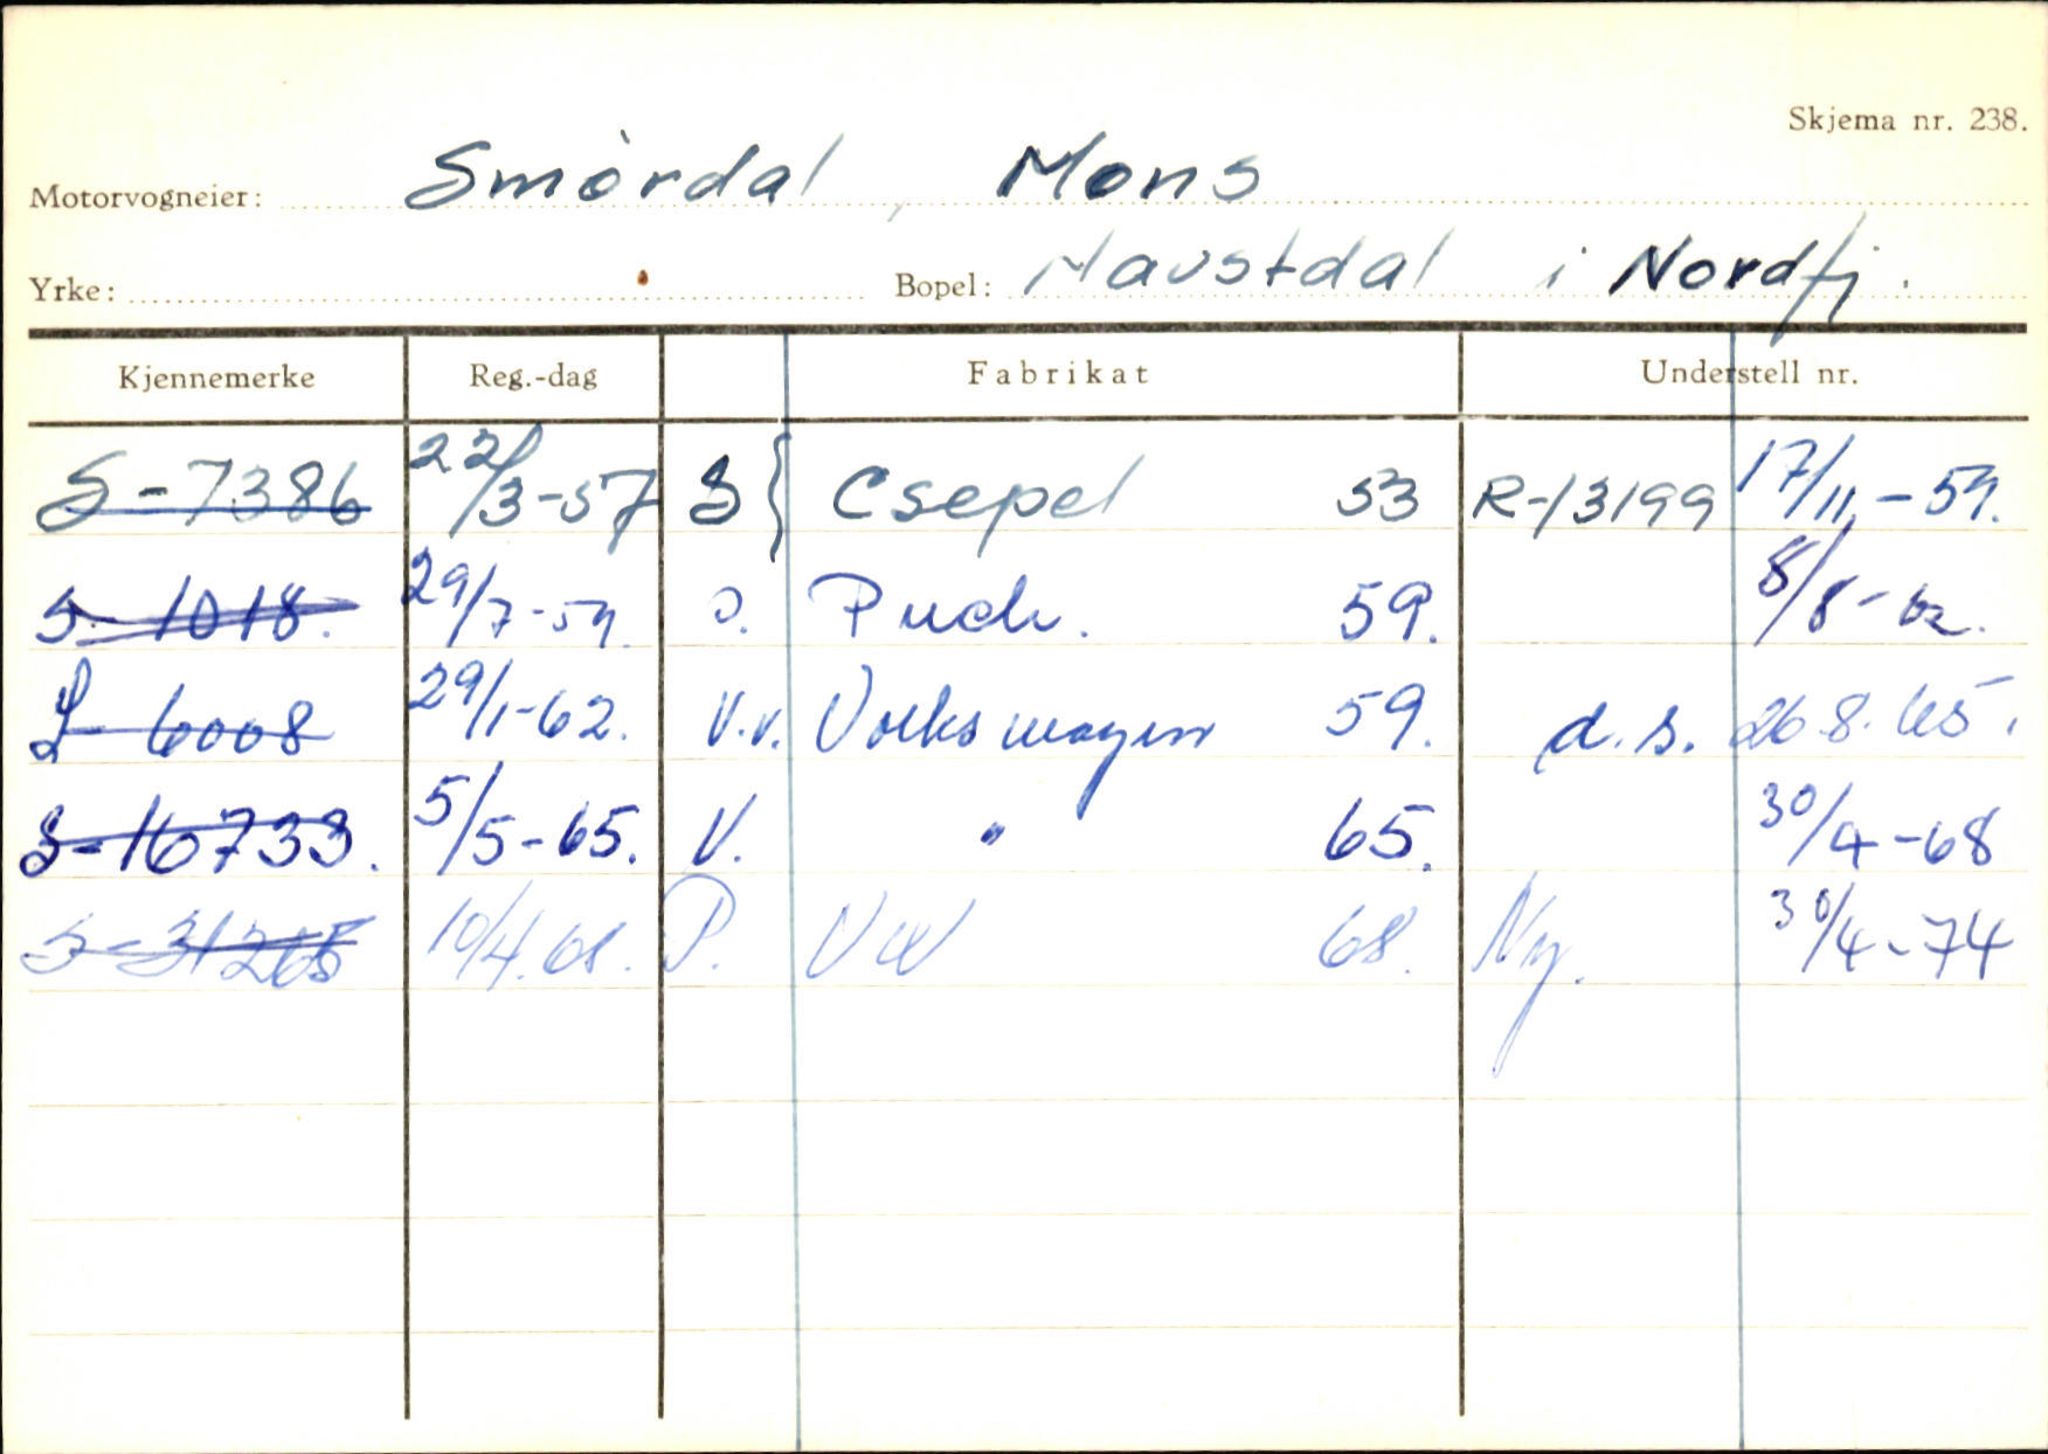 Skjema nr. 238.
Motorvogneier: Smørdal, Mons
Yrke: Bopel: Naustdal i Nordfj.
Kjennemerke Reg.-dag Fabrikat Understell nr.
S-7386 22/3-57 S { Csepel 53 R-13199 17/11-59.
S-1018. 29/7-59. Puch. 59. 8/8-62.
S 6008 29/1-62. V.v. Volkswagen 59. d.s. 26.8.65.
S-16733. 5/5-65. V. " 65. 30/4-68
S-31265 10/4.68. P. VW 68. Ny. 30/4-74